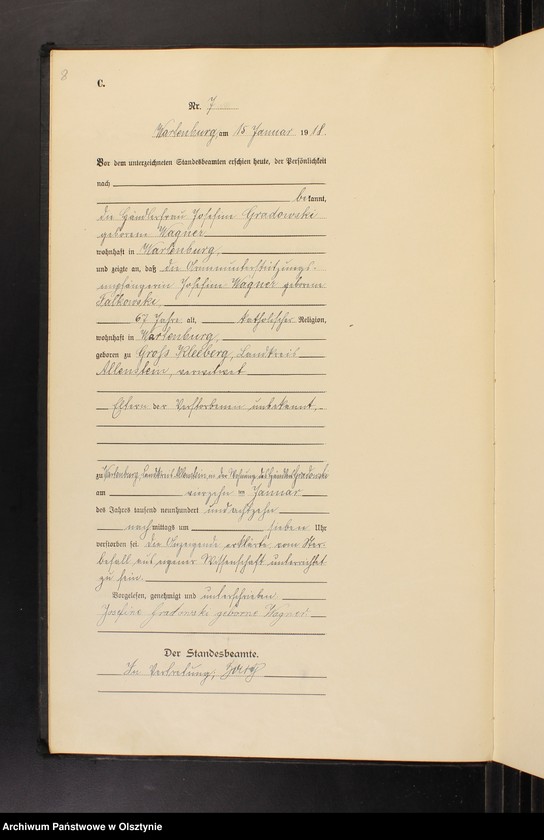 8
C.
Nr. 7
Wartenburg am 15 Januar 1918.
Vor dem unterzeichneten Standesbeamten erschien heute, der Persönlichkeit
nach
bekannt,
die Händlerfrau Josefine Gradowski
geborene Wagner
wohnhaft in Wartenburg,
und zeigte an, daß die Armenunterstützungs-
empfängerin Josefine Wagner geborene
Falkowski,
67 Jahre alt, katholischer Religion,
wohnhaft in Wartenburg,
geboren zu Groß Kleeberg, Landkreis
Allenstein, verwitwet
Eltern der Verstorbenen unbekannt,
zu Wartenburg, Landkreis Allenstein, in der Wohnung des Händlers Gradowski
am vierzehn ten Januar
des Jahres tausend neunhundert und achtzehn
nachmittags um sieben Uhr
verstorben sei. Die Anzeigende erklärte, vom Ster-
befall aus eigener Wissenschaft unterrichtet
zu sein.
Vorgelesen, genehmigt und unterschrieben
Josefine Gradowski geborne Wagner
Der Standesbeamte.
In Vertretung,
Archiwum Państwowe w Olsztynie